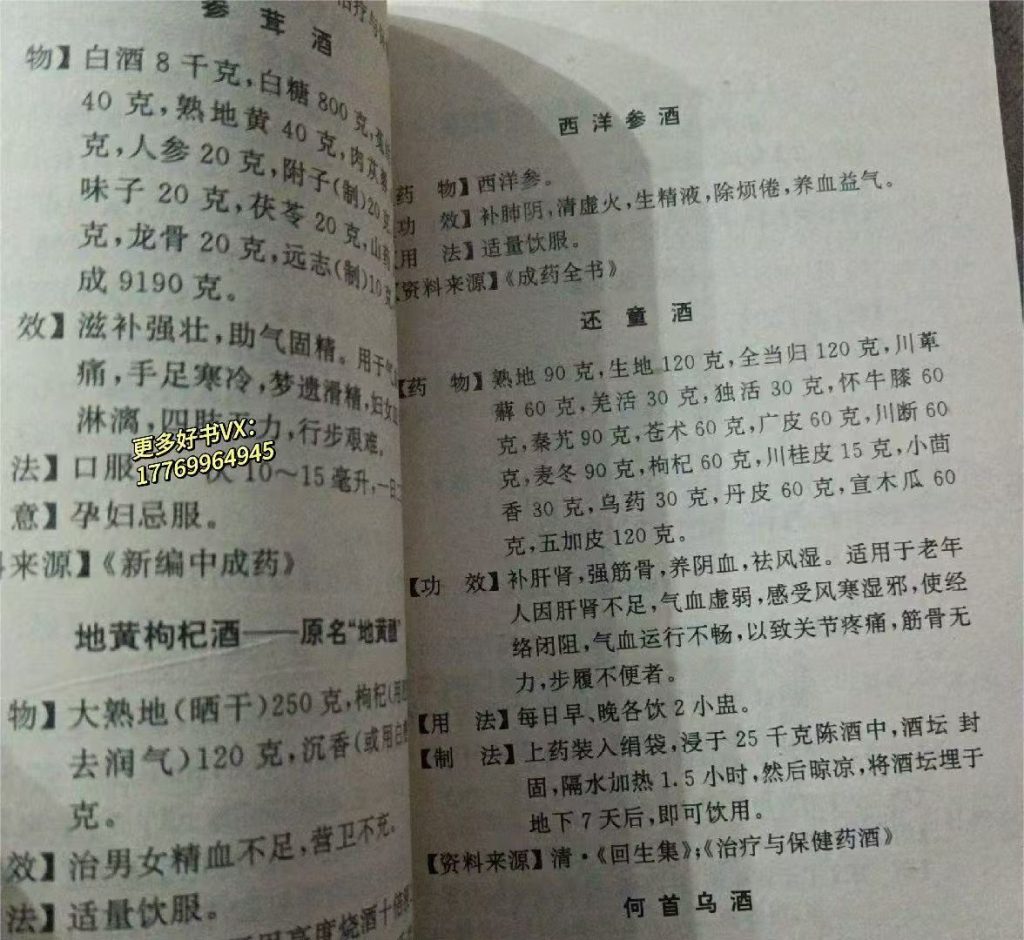 治疗与
参茸酒
物】白酒8千克,白糖800克,
40克,熟地黄40克,肉苁蓉
克,人参20克,附子(制)20克
味子20克,茯苓20克,山药
克,龙骨20克,远志(制)10克
成9190克。
效】滋补强壮,助气固精。用于气
痛,手足寒冷,梦遗滑精,妇女
淋漓,四肢无力,行步艰难。
法】口服 次10～15毫升,一日二
意】孕妇忌服。
来源】《新编中成药》
地黄枸杞酒——原名“地黄酒
物】大熟地(晒干)250克,枸杞(用
去润气)120克,沉香(或用白
克。
效】治男女精血不足,营卫不充。
法】适量饮服。
高度烧酒十倍
更多好书VX:
17769964945
西洋参酒
药 物】西洋参。
功 效】补肺阴,清虚火,生精液,除烦倦,养血益气。
用 法】适量饮服。
【资料来源】《成药全书》
还童酒
【药 物】熟地90克,生地120克,全当归120克,川萆
薢60克,羌活30克,独活30克,怀牛膝60
克,秦艽90克,苍术60克,广皮60克,川断60
克,麦冬90克,枸杞60克,川桂皮15克,小茴
香30克,乌药30克,丹皮60克,宣木瓜60
克,五加皮120克。
【功 效】补肝肾,强筋骨,养阴血,祛风湿。适用于老年
人因肝肾不足,气血虚弱,感受风寒湿邪,使经
络闭阻,气血运行不畅,以致关节疼痛,筋骨无
力,步履不便者。
【用 法】每日早、晚各饮2小盅。
【制 法】上药装入绢袋,浸于25千克陈酒中,酒坛 封
固,隔水加热1.5小时,然后晾凉,将酒坛埋于
地下7天后,即可饮用。
【资料来源】清·《回生集》;《治疗与保健药酒》
何首乌酒